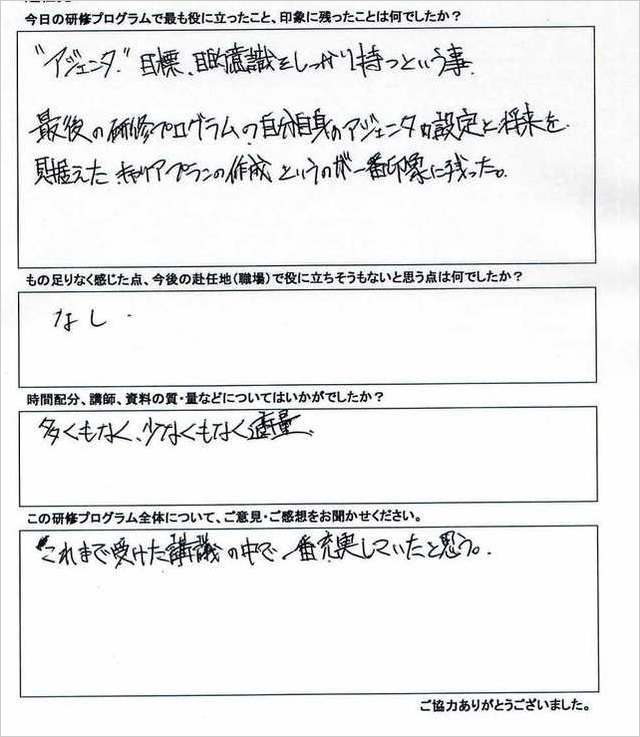 今日の研修プログラムで最も役に立ったこと、印象に残ったことは何でしたか？
"アジェンダ" 目標、目的意識をしっかり持つという事.
最後の研修プログラムの自分自身のアジェンダの設定と将来を
見据えたキャリアプランの作成というのが一番印象に残った。
もの足りなく感じた点、今後の赴任地(職場)で役に立ちそうもないと思う点は何でしたか？
なし.
時間配分、講師、資料の質・量などについてはいかがでしたか？
多くもなく、少なくもなく適量.
この研修プログラム全体について、ご意見・ご感想をお聞かせください。
これまで受けた講議の中で一番充実していたと思う。
ご協力ありがとうございました。